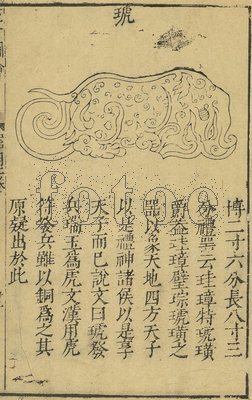 琥
博二寸六分長八寸三
分禮器云圭璋特琥璜
爵葢圭璋璧琮琥璜之
器以象天地四方天子
以是禮神諸侯以是享
天子而已說文曰琥發
兵瑞玉爲虎文漢用虎
符發兵雖以銅爲之其
原葢出於此
fotoe